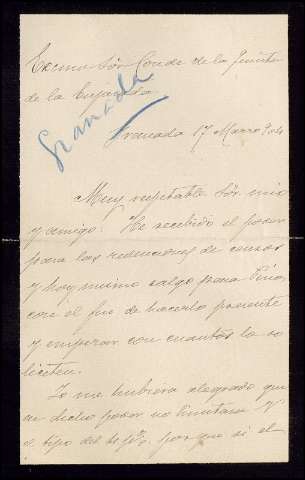 Excmo Sor Conde de la Quinta
de la Enjarada
Granada
Granada 17 Marzo 904
Muy respetable Sor mio
y amigo: He recibido el poder
para las redenciones de censos
y hoy mismo salgo para
con el fin de hacerlo presente
y empezar con cuantos lo so
liciten.
Yo me hubiera alegrado que
dicho poder no limitara
el tipo del por que si el